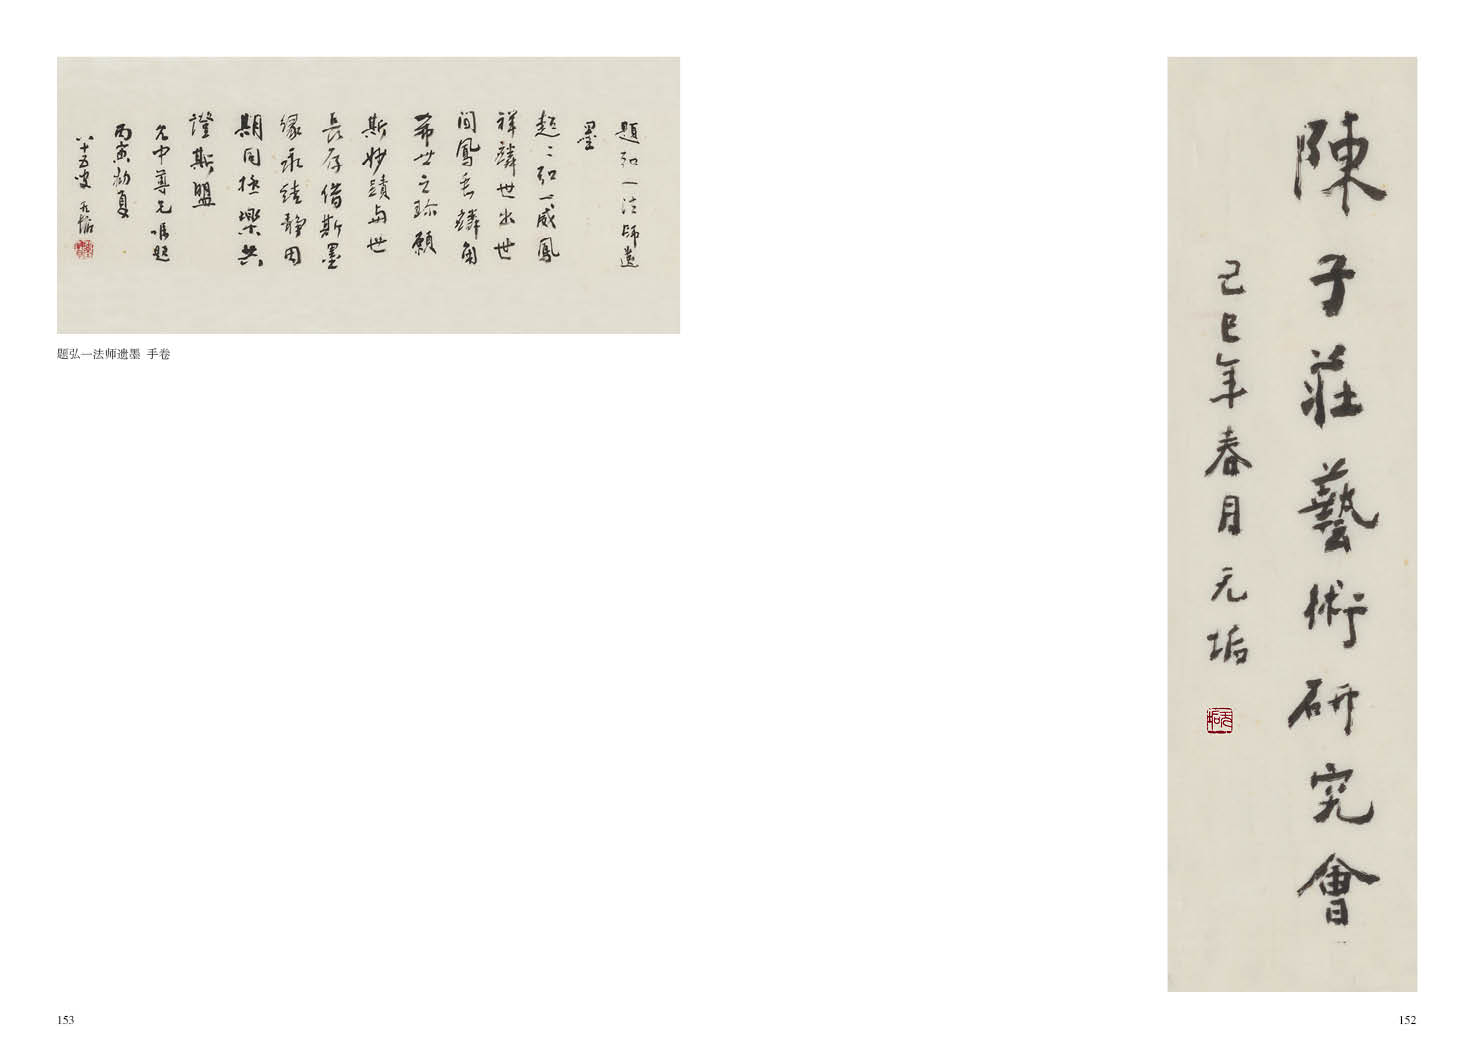 陳子莊藝術研究會
己巳年春月 无垢
152
題弘一法師遺
墨
超超弘一威鳳
祥麟世出世
間鳳毛麟角
希世之珍願
斯妙蹟與世
長存借斯墨
緣永結靜因
期同極樂共
證斯盟
允中尊兄嘱题
丙寅初夏
八十五叟 无垢
题弘一法师遗墨 手卷
153